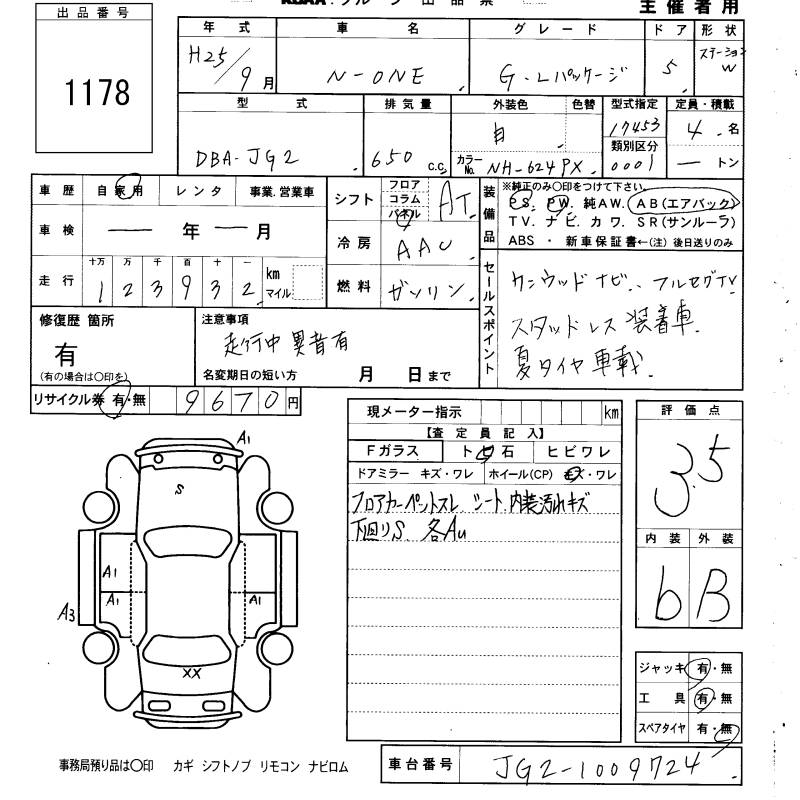 主催者用
出品番号
1178
年式 車名 グレード ドア 形状
H25/9月 N-ONE G・Lパッケージ 5 ステーションW
型式 排気量 外装色 色替 型式指定 定員・積載
DBA-JG2 650 c.c. 白 17453 4名
カラーNo. NH-624PX 類別区分 0001 ートン
車歴 自家用 レンタ 事業.営業車
車検 ー年ー月
走行 十万 万 千 百 十 一
123932 km マイル
シフト フロア コラム パネル AT
冷房 AAC
燃料 ガソリン
装備品 ※純正のみ〇印をつけて下さい。
PS. PW. 純AW. AB(エアバック)
TV. ナビ. カワ. SR(サンルーラ)
ABS ・ 新車保証書←(注) 後日送りのみ
セールスポイント
ケンウッドナビ、フルセグTV
スタッドレス装着車
夏タイヤ車載
修復歴 箇所
有
(有の場合は〇印を)
注意事項
走行中異音有
名変期日の短い方 月 日まで
リサイクル券 有・無 9670円
現メーター指示 km
【査定員記入】
Fガラス トビ石 ヒビワレ
ドアミラー キズ・ワレ ホイール(CP) キズ・ワレ
フロアカーペットスレ シート、内装汚れキズ
下回りS 各AU
評価点
3.5
内装 外装
b B
ジャッキ 有・無
工具 有・無
スペアタイヤ 有・無
A1
S
A1
A1 A1
A3
XX
事務局預り品は〇印 カギ シフトノブ リモコン ナビロム
車台番号 JG2-1009724